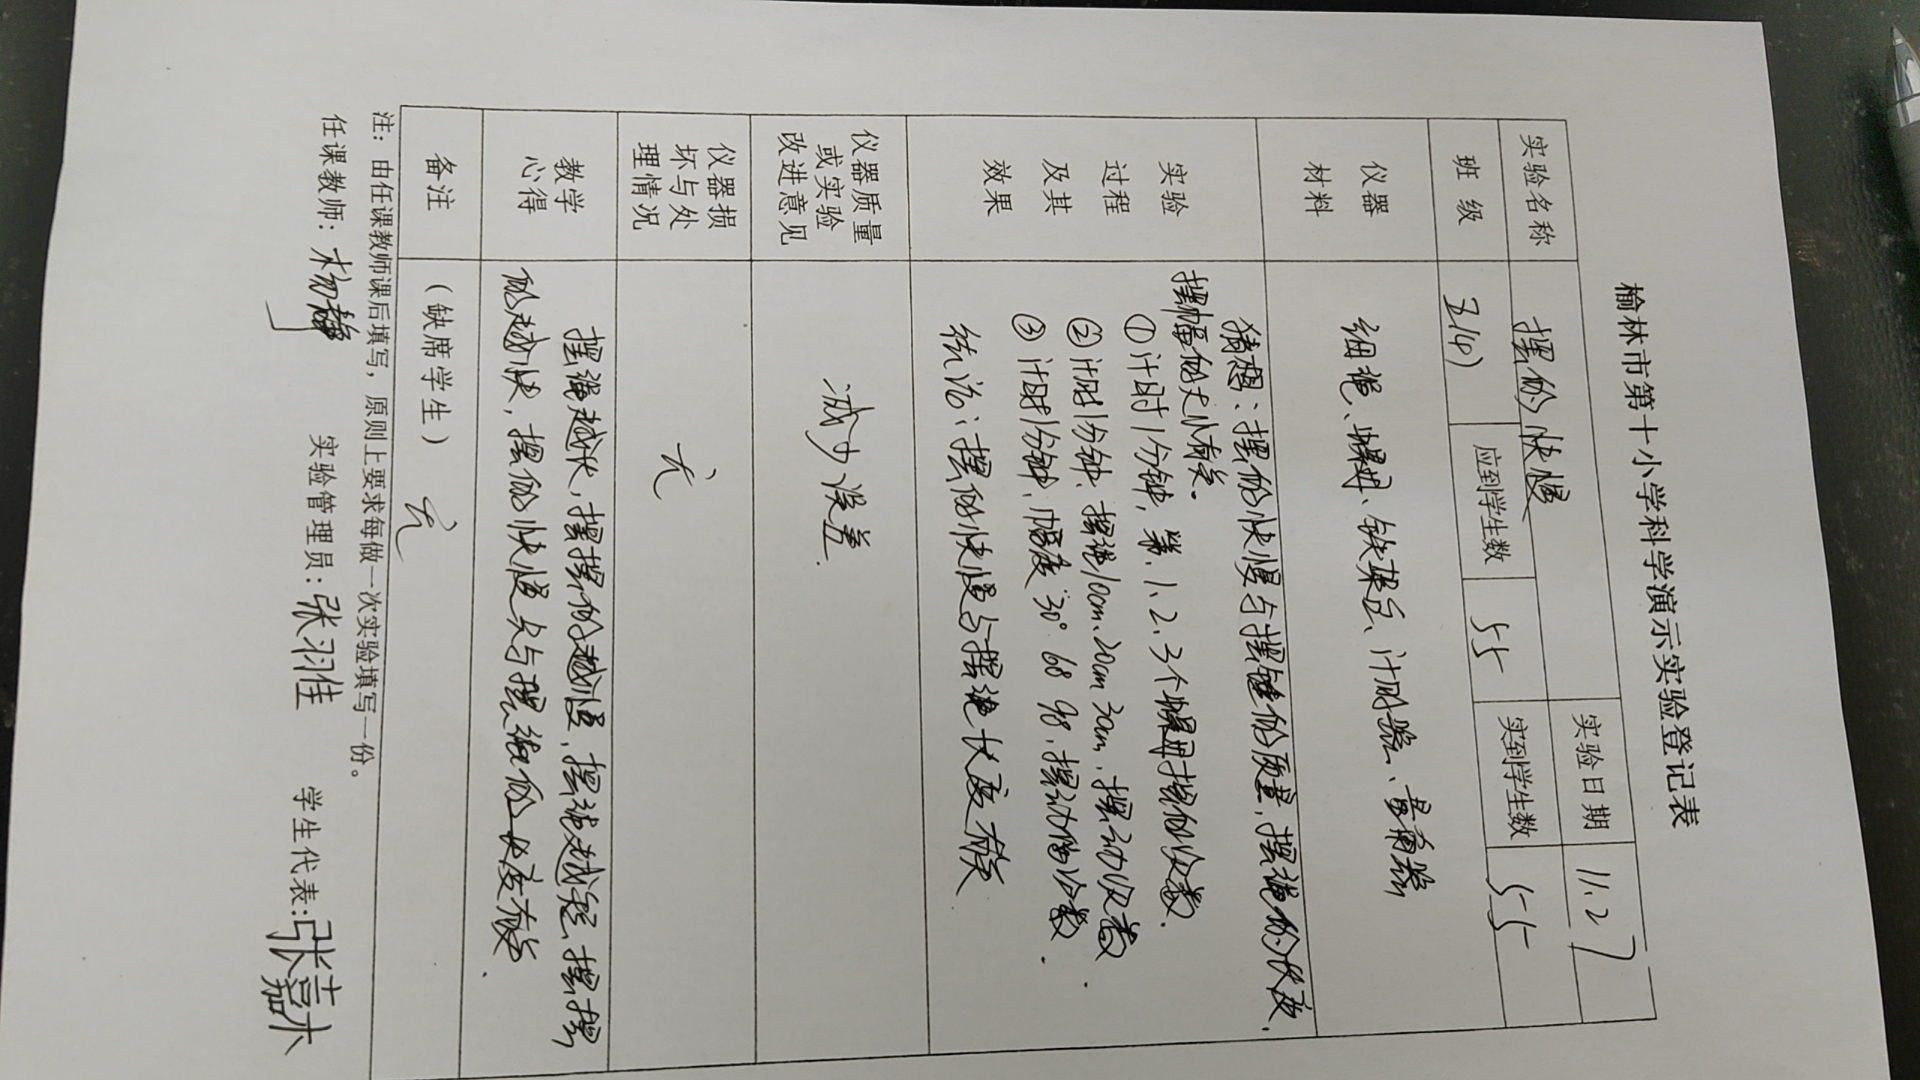 榆林市第十小学科学演示实验登记表
实验名称 摆的快慢 实验日期 11.27
班 级 五(4) 应到学生数 55 实到学生数 55
仪器
材料
细绳、螺母、铁架台、计时器、量角器
实验
过程
及其
效果
猜想：摆的快慢与摆锤的质量，摆绳的长度，
摆幅的大小有关。
①计时1分钟，第1、2、3个螺母摆的次数.
②计时1分钟、摆绳10cm、20cm 30cm，摆动次数.
③计时1分钟、幅度30° 60 90，摆动的次数.
结论：摆的快慢与摆绳长度有关
仪器质量
或实验
改进意见
减少误差.
仪器损
坏与处
理情况
无
教学
心得
摆绳越长，摆摆的越慢，摆绳越短，摆摆
的越快，摆的快慢只与摆绳的长度有关.
备注
（缺席学生） 无
注：由任课教师课后填写，原则上要求每做一次实验填写一份。
任课教师：杨静 实验管理员：张羽佳 学生代表：张嘉木